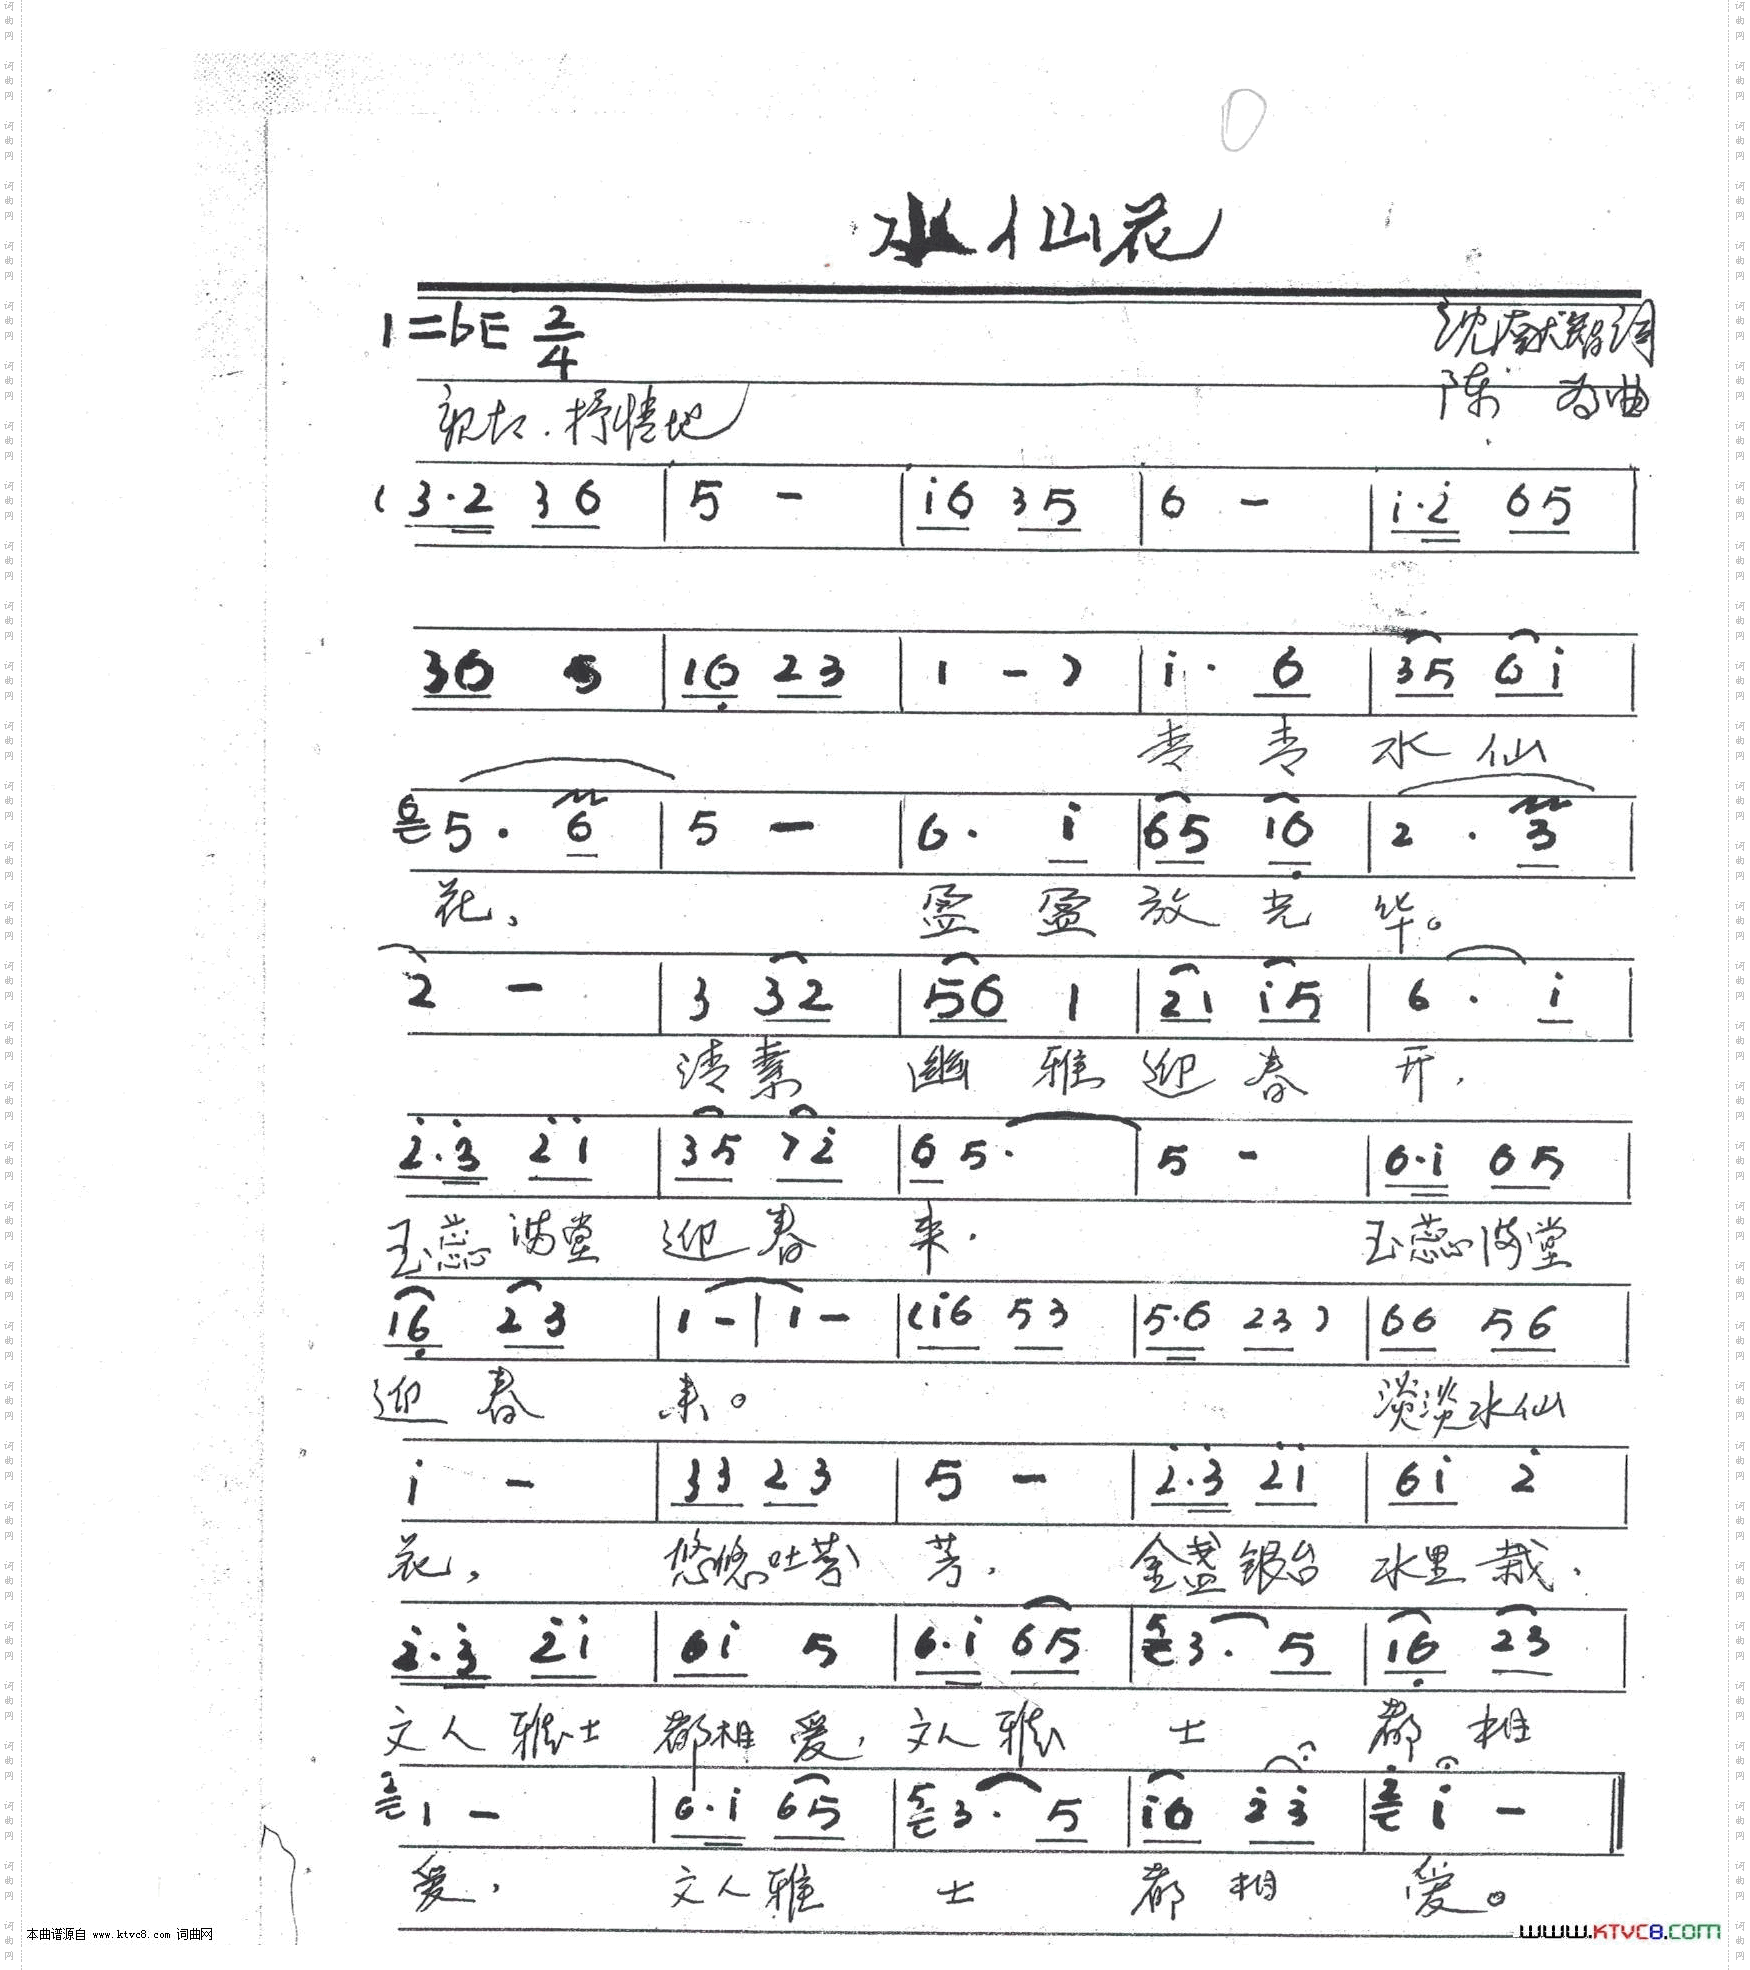 水仙花
1=bE 2/4
沈献智词
陈 为曲
亲切.抒情地
(3·2 36 | 5 - | i6 35 | 6 - | i·2̇ 65 |
36 5 | 16̣ 23 | 1 - ) | i· 6 | 35 6i |
青 青 水 仙
6 5· 6 | 5 - | 6· i | 65 16̣ | 2· 3 |
花, 盈 盈 放 光 华。
2 - | 3 32 | 56 1 | 21 i5 | 6· i |
清素 幽 雅 迎 春 开,
2̇·3̇ 2̇i | 35 72̇ | 6 5· | 5 - | 6·i 65 |
玉蕊满堂 迎春 来. 玉蕊满堂
16̣ 23 | 1 - | 1 - | (i6 53 | 5·6 23) | 66 56 |
迎 春 来。 淡淡水仙
i - | 33 23 | 5 - | 2̇·3̇ 2̇i | 6i 2̇ |
花, 悠悠吐芬 芳, 金盏银台 水里栽.
2̇·3̇ 2̇i | 6i 5 | 6·i 65 | 5 3· 5 | 16̣ 23 |
文人雅士 都相爱, 文人雅 士 都 相
2 1 - | 6·i 65 | 5 3· 5 | i6 2̇3̇ | 2̇ i - ‖
爱, 文人雅 士 都 相 爱。
本曲谱源自 www.ktvc8.com 词曲网
www.KTVC8.com